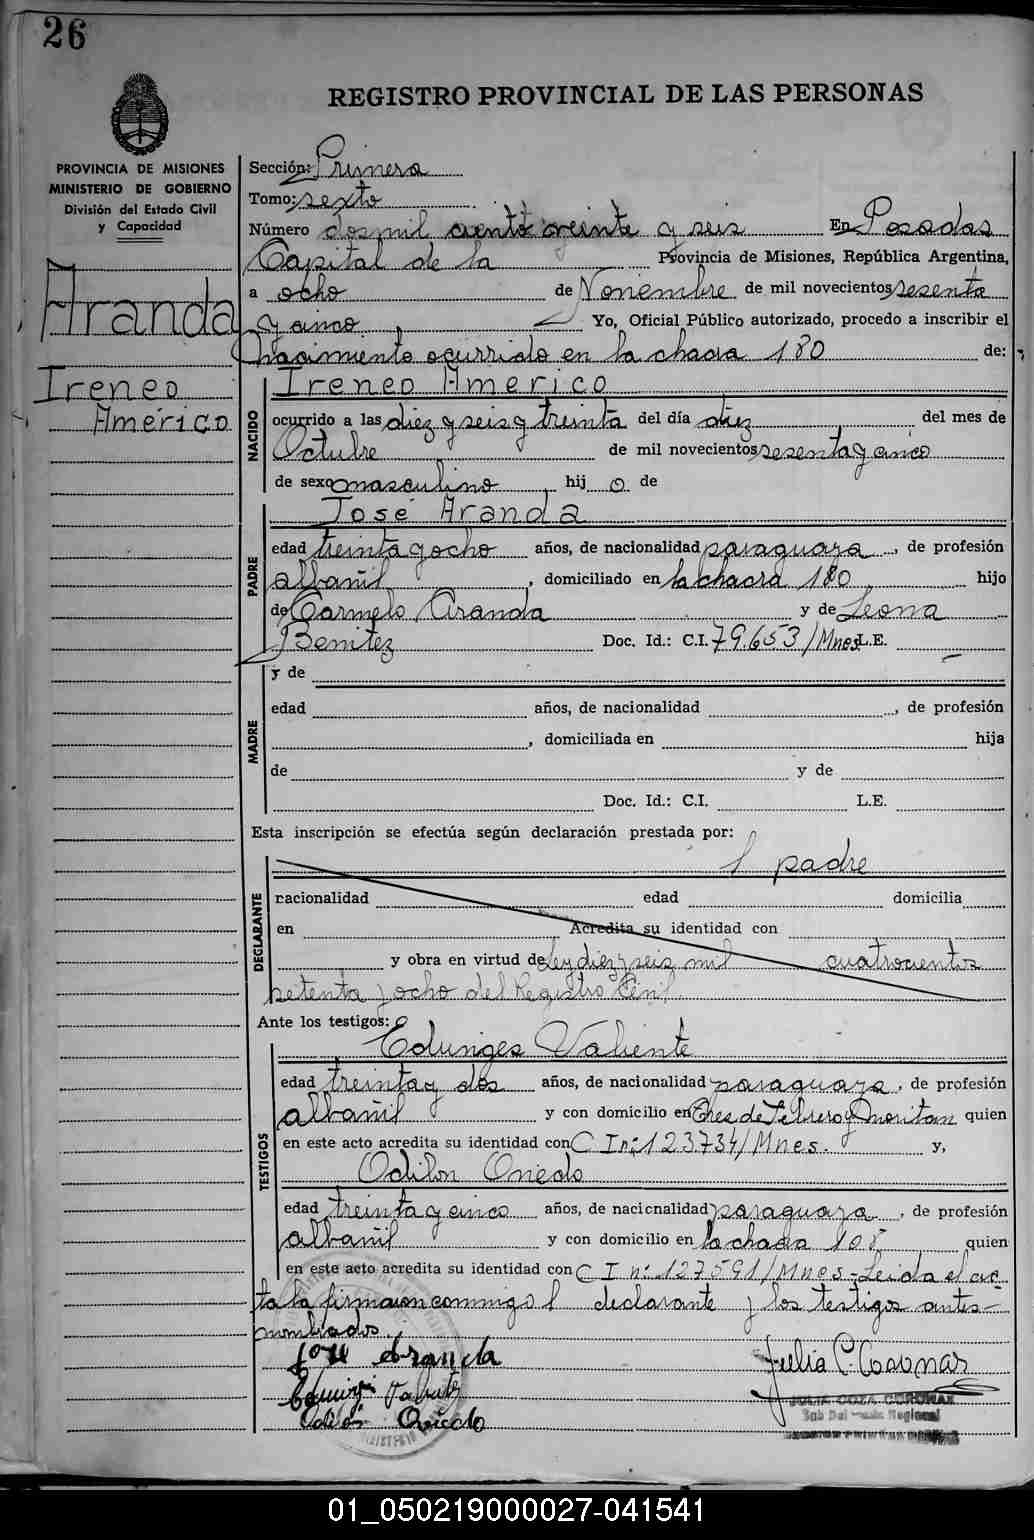 26
REGISTRO PROVINCIAL DE LAS PERSONAS
PROVINCIA DE MISIONES
MINISTERIO DE GOBIERNO
División del Estado Civil
y Capacidad
Aranda
Ireneo
Américo
Sección: Primera
Tomo: sexto
Número dosmil ciento veinte y seis En Posadas
Capital de la Provincia de Misiones, República Argentina,
a ocho de Noviembre de mil novecientos sesenta
y cinco, Yo, Oficial Público autorizado, procedo a inscribir el
nacimiento ocurrido en la chacra 180 de:
NACIDO
Ireneo Americo
ocurrido a las diez y seis y treinta del día diez del mes de
Octubre de mil novecientos sesenta y cinco
de sexo masculino, hijo de
PADRE
José Aranda
edad treinta y ocho años, de nacionalidad paraguaya, de profesión
albañil, domiciliado en la chacra 180 hijo
de Carmelo Aranda y de Leona
Benitez Doc. Id.: C.I. 79.653/Mnes L.E.
MADRE
y de
edad años, de nacionalidad, de profesión
, domiciliada en hija
de y de
Doc. Id.: C.I. L.E.
Esta inscripción se efectúa según declaración prestada por:
DECLARANTE
l padre
nacionalidad edad domicilia
en Acredita su identidad con
y obra en virtud de Ley diez y seis mil cuatrocientos
setenta y ocho del Registro Civil.
Ante los testigos:
TESTIGOS
Eduviges Valiente
edad treinta y dos años, de nacionalidad paraguaya, de profesión
albañil y con domicilio en Tres de Febrero y Moritan quien
en este acto acredita su identidad con C I nº: 123.734/Mnes. y,
Odilon Oviedo
edad treinta y cinco años, de nacionalidad paraguaya, de profesión
albañil y con domicilio en la chacra quien
en este acto acredita su identidad con C I nº: 127591/Mnes - Leida el ac
ta la firmaron conmigo l declarante y los testigos antes-
nombrados.
José Aranda
Julia C. Coronas
Oviedo
JULIA COZA CORONAS
01_050219000027-041541